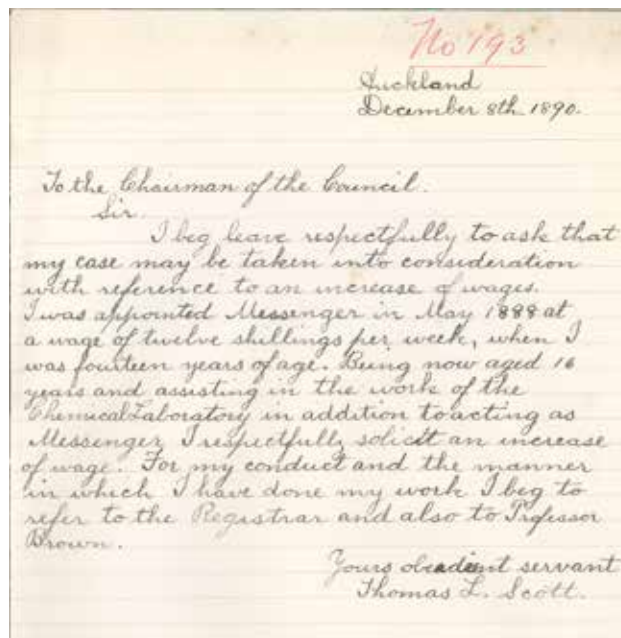 No 193
Auckland
December 8th 1890.
To the Chairman of the Council.
Sir.
I beg leave respectfully to ask that
my case may be taken into consideration
with reference to an increase of wages.
I was appointed Messenger in May 1888 at
a wage of twelve shillings per week, when I
was fourteen years of age. Being now aged 16
years and assisting in the work of the
Chemical Laboratory in addition to acting as
Messenger, I respectfully solicit an increase
of wage. For my conduct and the manner
in which I have done my work I beg to
refer to the Registrar and also to Professor
Brown.
Yours obedient servant
Thomas L. Scott.